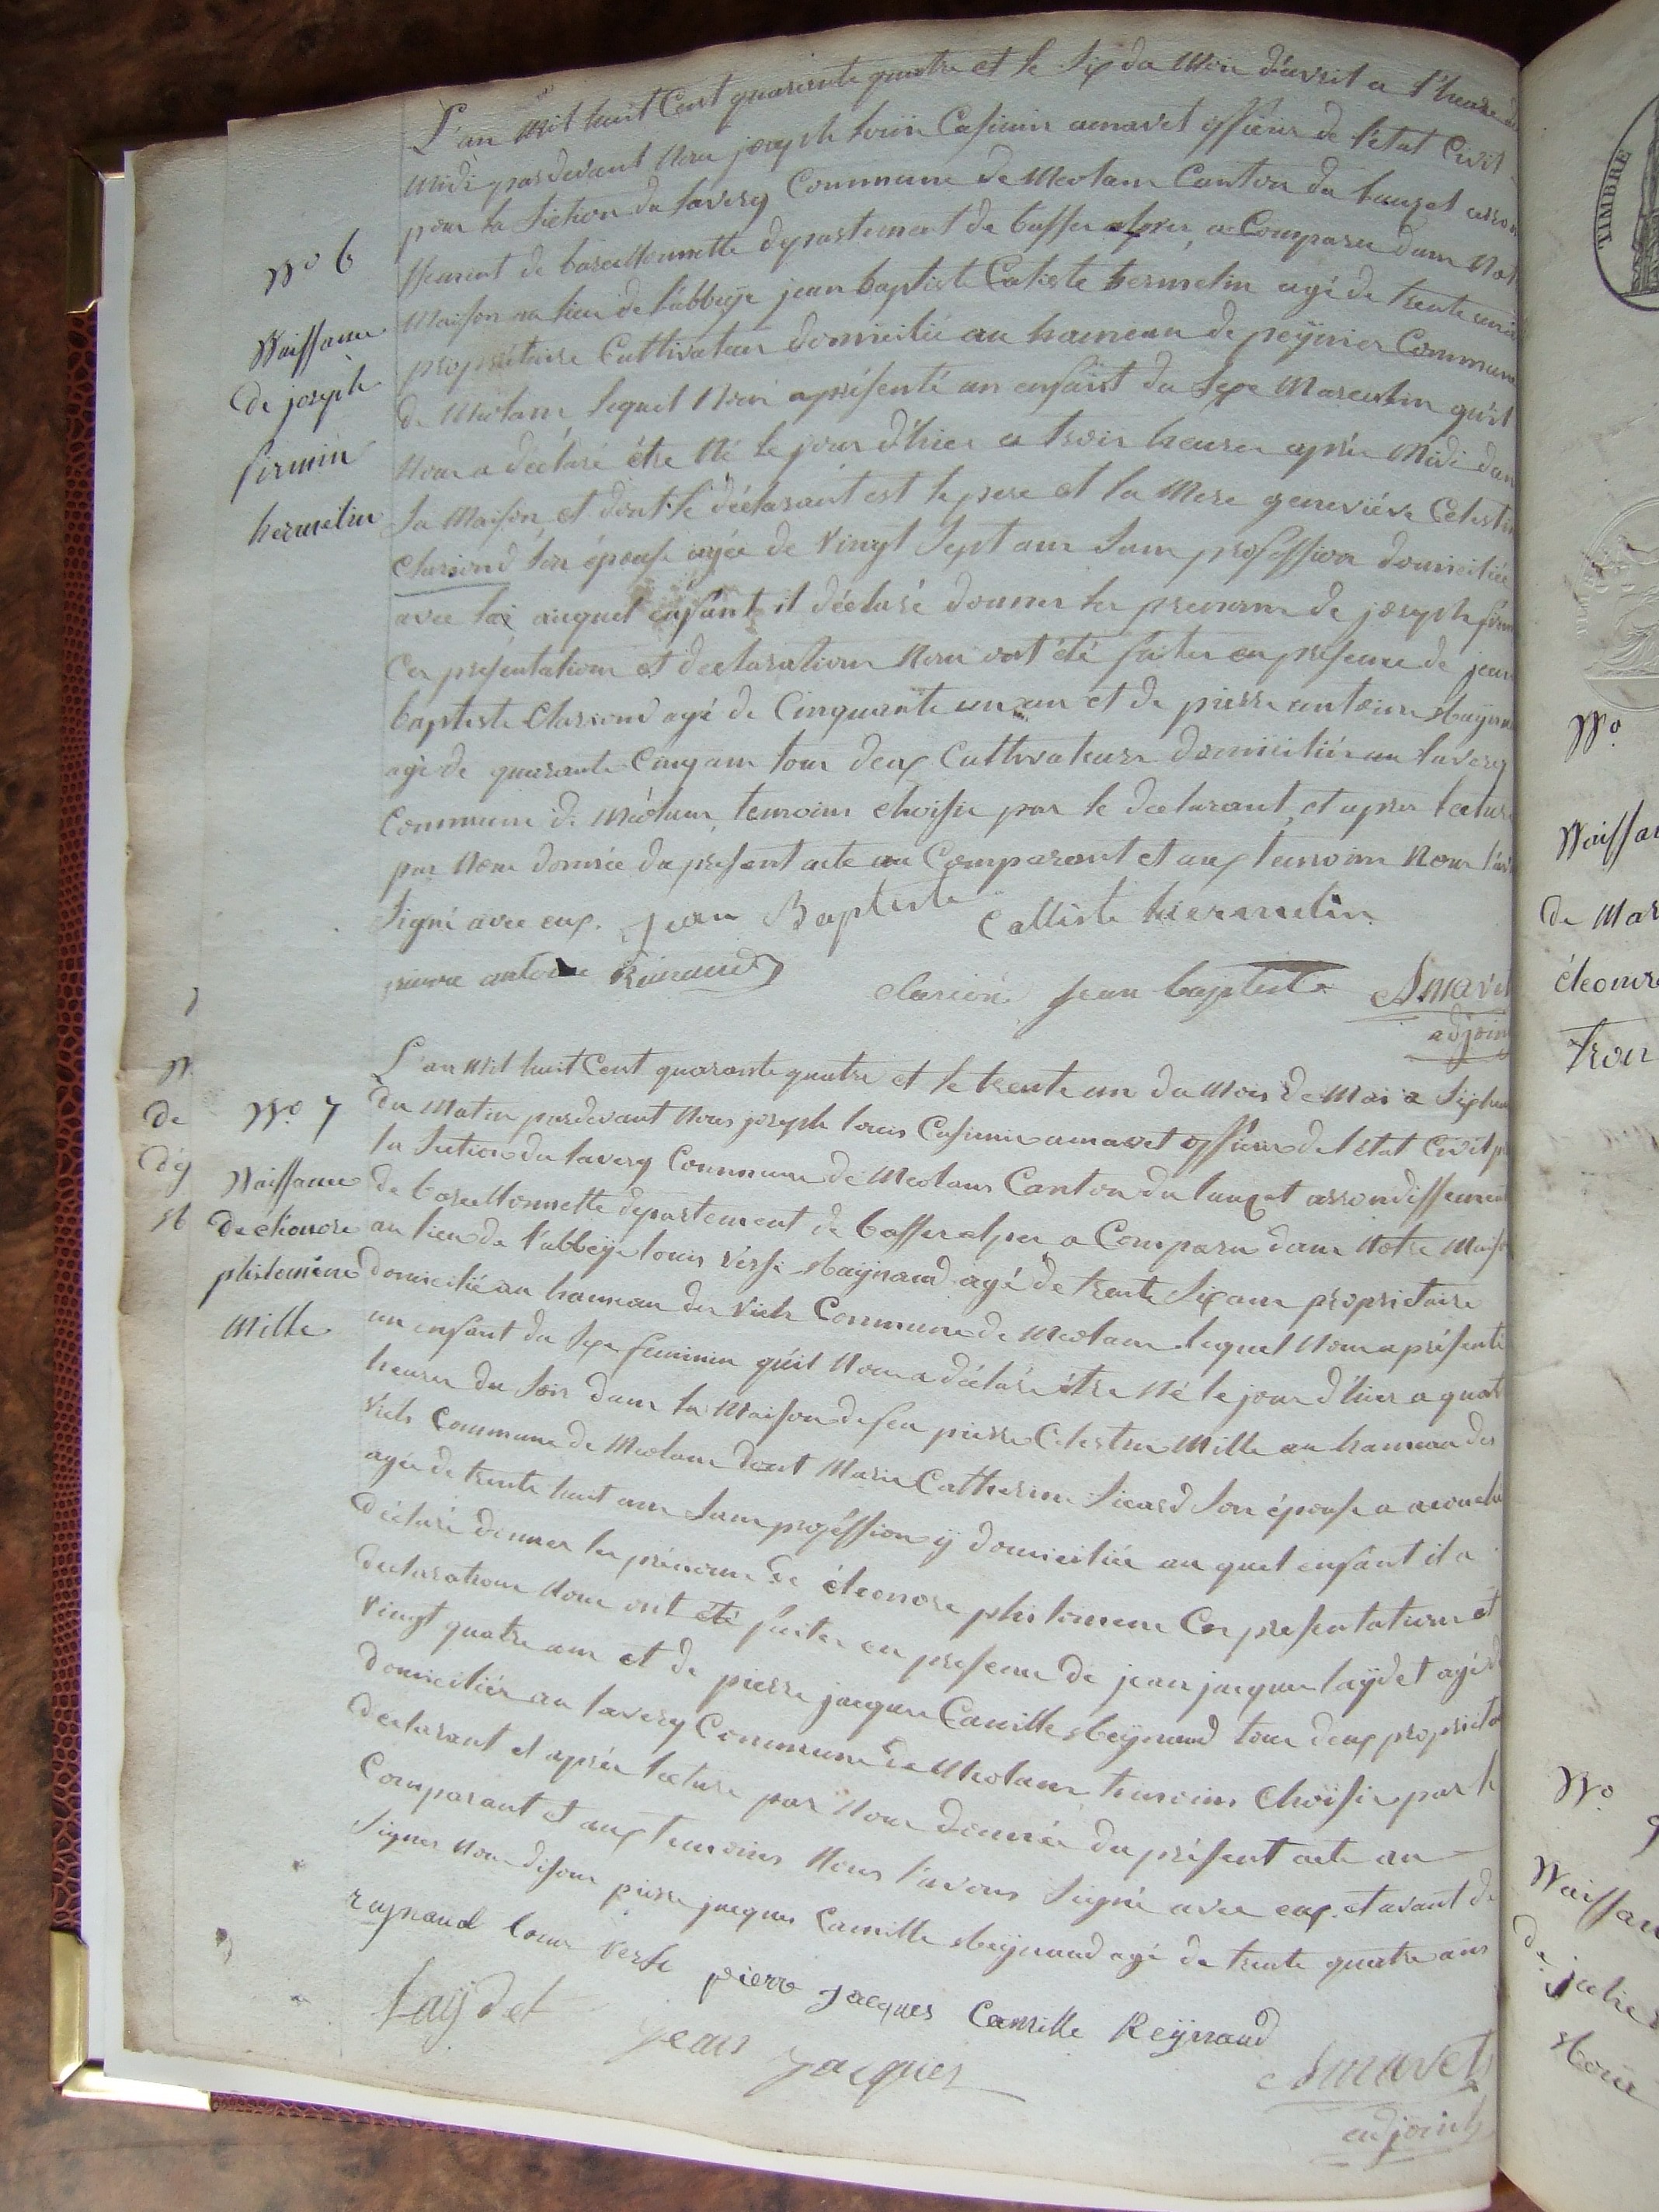 L'an mil huit Cent quarante quatre et le Six du Mois d'avril a l'heure de
midi pardevant Nous joseph louis Casimir amavet officier de l'état Civil
pour la Section du laverq Commune de Meolans Canton du lauzet arron
ssement de barcelonnette departement de basses alpes, a Comparu dans Not
Maison au lieu de l'abbeÿe jean baptiste Caliste hermelin agé de trente
propriétaire Cultivateur domicilié au hameau de peÿnier Commune
de Meolans, lequel Nous a présenté un enfant du Sexe Masculin qu'il
Nous a déclaré être Né le jour d'hier a trois heures après Midi dans
Sa Maison, et dont le déclarant est le pere et la Mere geneviéve Celestin
Clariond Son épouse agée de Vingt Sept ans Sans profession domiciliée
avec lui auquel enfant il déclaré donner les prenoms de joseph firm
Ces présentations et declarations Nous ont été faites en presence de jean
baptiste Clariond agé de Cinquante un ans et de pierre antoine Raynau
agé de quarante Cinq ans tous deux Cultivateurs domiciliés au laverq
Commune de Méolans, temoins choisis par le declarant, et apres lecture
par Nous donnée du present acte au Comparant et aux temoins Nous l'av
Signé avec eux. Jean Baptiste Calliste hermelin
pierre antoine Reinaud
clarion jean baptiste Amavet
adjoin
N° 6
Naissance
de joseph
firmin
hermelin
L'an Mil huit Cent quarante quatre et le trente un du Mois de Mai a Six heu
du Matin pardevant Nous joseph louis Casimir amavet officier de l'état Civil p
la Section du laverq Commune de Meolans Canton du lauzet arrondissement
de barcellonnette departement de basses alpes a Comparu dans Notre Maiso
au lieu de l'abbeÿe louis Raÿnaud agé de trente Six ans propriétaire
domicilié au hameau des Vieh Commune de Meolans lequel Nous a présenté
un enfant du Sexe feminin qu'il Nous a déclaré être Né le jour d'hier a quatr
heures du Soir dans la Maison de feu pierre Celestin Mille au hameau des
Vieh Commune de Meolans dont Marie Catherine Sicard Son épouse a accouché
agée de trente huit ans Sans proféssion ÿ domiciliée au quel enfant il a
déclaré donner les prénoms de éleonore philomene Ces presentations et
declarations Nous ont été faites en presence de jean jacques laÿdet agé de
Vingt quatre ans et de pierre jacques Camille Reÿnaud tous deux propriéta
domiciliés au laverq Commune de Meolans temoins Choisis par le
declarant et après lecture par Nous donnée du présent acte au
Comparant et aux temoins Nous l'avons Signé avec eux. et avant de
Signer Nous disons pierre jacques Camille Reÿnaud agé de trente quatre ans
raynaud
pierre Jacques Camille Reÿnaud
laÿdet jean jacques
Amavet
adjoint
N° 7
Naissance
de eleonore
philomène
Mille
N
de
N°
Naissan
de Mar
éleonore
Tron
N°
9
Naissan
de
julie
TIMBRE